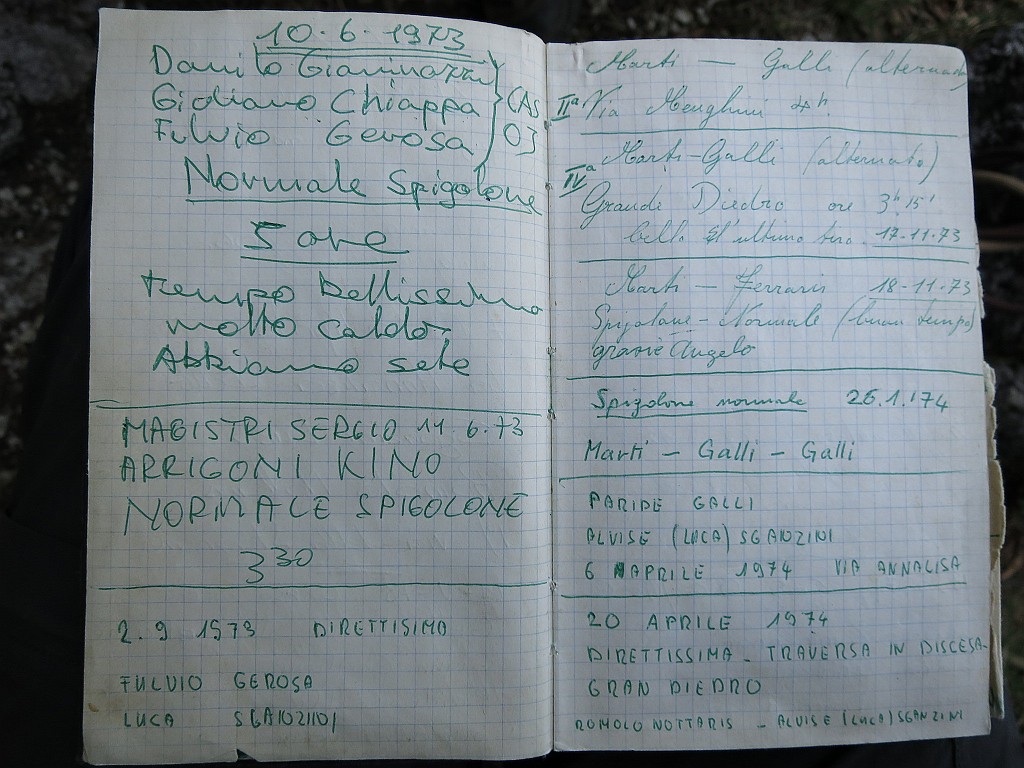 10.6.1973
Danilo Gianinazzi
Giuliano Chiappa } CAS
Fulvio Gerosa OJ
Normale Spigolone
5 ore
tempo bellissimo
molto caldo,
Abbiamo sete
MAGISTRI SERGIO 11.6.73
ARRIGONI KINO
NORMALE SPIGOLONE
3 30
2.9 1973 DIRETTISIMA
FULVIO GEROSA
LUCA SGANZINI
Marti — Galli (alternato)
IIª Via Menghini 4h.
Marti-Galli (alternato)
IVª
Grande Diedro ore 3h 15'
17.11.73
Marti — Ferraris 18-11-73
Spigolone - Normale (buon tempo)
grazie Angelo
Spigolone normale 26.1.'74
Marti - Galli - Galli
PARIDE GALLI
ALVISE (LUCA) SGANZINI
6 APRILE 1974 VIA ANNALISA
20 APRILE 1974
DIRETTISSIMA - TRAVERSA IN DISCESA-
GRAN DIEDRO
ROMOLO NOTTARIS - ALVISE (LUCA) SGANZINI